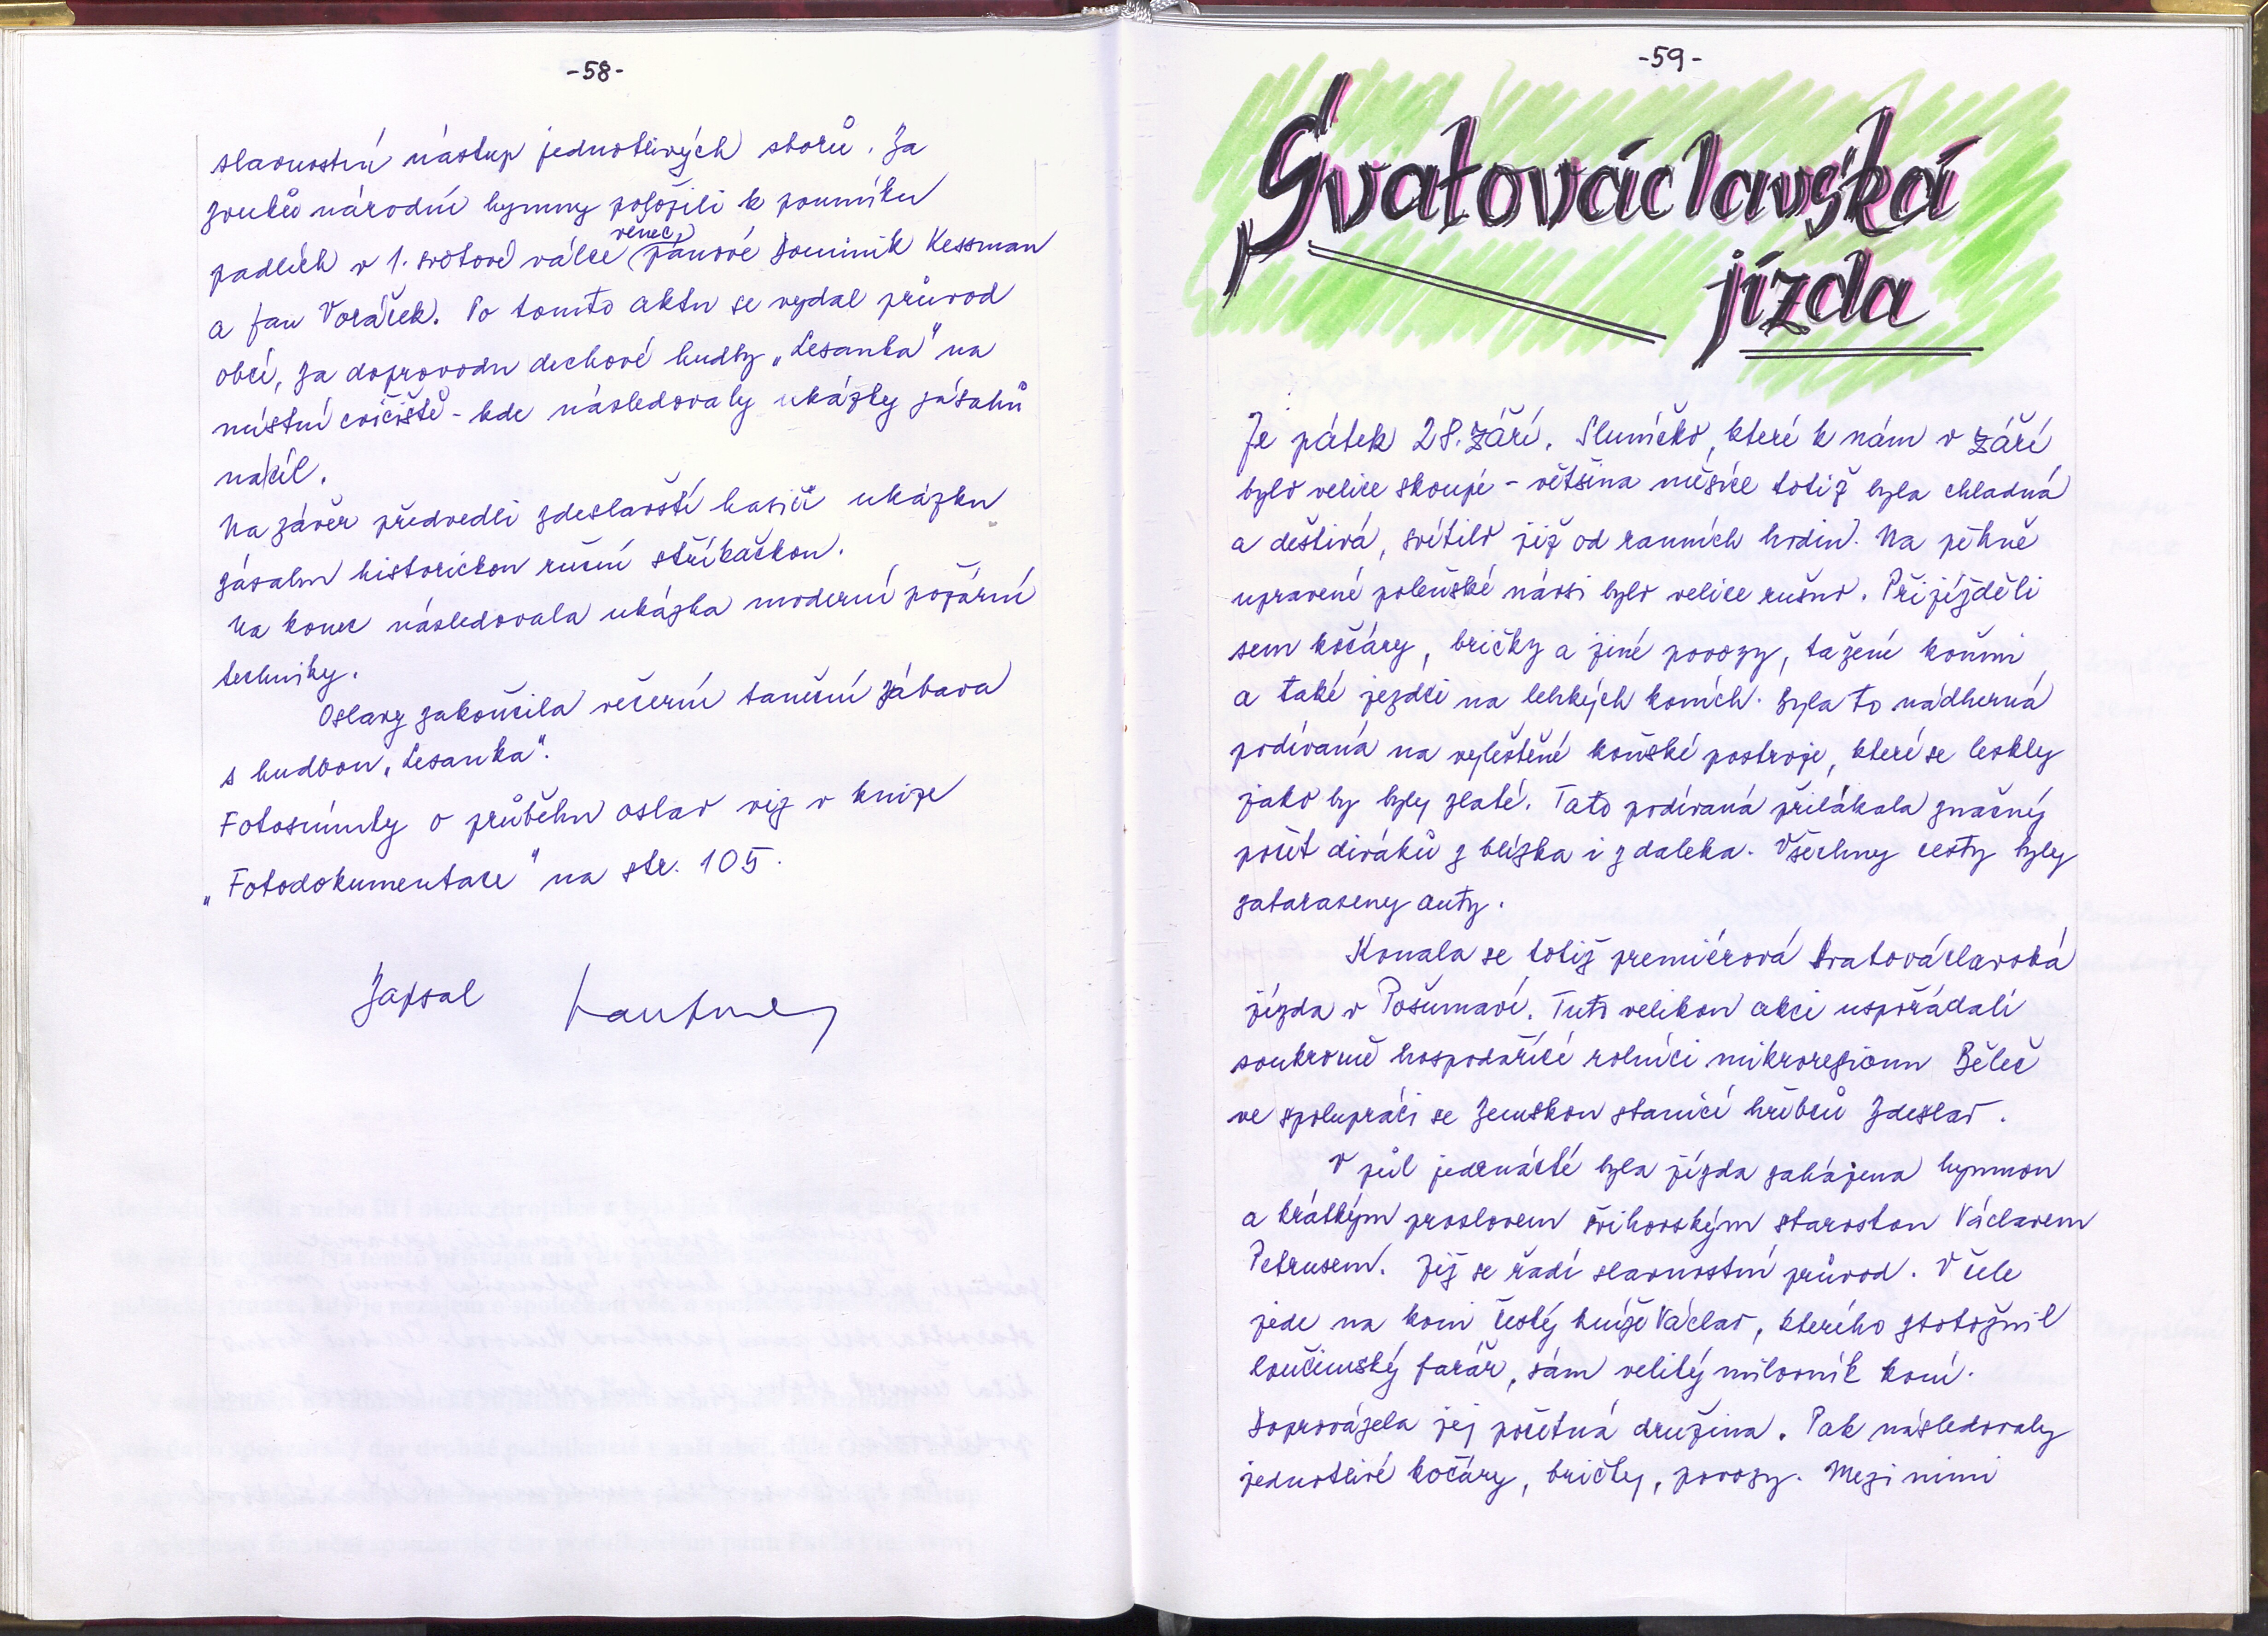 -58-
slavnostní nástup jednotlivých sborů. Za
zvuků národní hymny položili k pomníku
padlých v 1. světové válce věnec, pánové Dominik Kessman
a Jan Voráček. Po tomto aktu se vydal průvod
obcí, za doprovodu dechové hudby „Lesanka" na
místní cvičiště - kde následovaly ukázky zásahů
na cíl.
Na závěr předvedli zdeslavští hasiči ukázku
zásahu historickou ruční stříkačkou.
Na konec následovala ukázka moderní požární
techniky.
Oslavy zakončila večerní taneční zábava
s hudbou „Lesanka".
Fotosnímky o průběhu oslav viz v knize
„Fotodokumentace" na str. 105.
Zapsal
-59-
Svatováclavská
jízda
Je pátek 28. září. Sluníčko, které k nám v září
bylo velice skoupé - většina měsíce totiž byla chladná
a deštivá, svítilo již od ranních hodin. Na pěkně
upravené poleňské návsi bylo velice rušno. Přijížděli
sem kočáry, bričky a jiné povozy, tažení koňmi
a také jezdci na lehkých koních. Byla to nádherná
podívaná na vyleštěné koňské postroje, které se leskly
jako by byly zlaté. Tato podívaná přilákala značný
počet diváků z blízka i z daleka. Všechny cesty byly
zataraseny auty.
Konala se totiž premiérová Svatováclavská
jízda v Pošumaví. Tuto velikou akci uspořádali
soukromě hospodařící rolníci mikroregionu Běleč
ve spolupráci se Zemskou stanicí hřebců Zdeslav.
V půl jedenácté byla jízda zahájena hymnou
a krátkým proslovem švihovským starostou Václavem
Petrusem. Již se řadí slavnostní průvod. V čele
jede na koni český kníže Václav, kterého ztotožnil
loučimský farář, sám veliký milovník koní.
Doprovázela jej početná družina. Pak následovaly
jednotlivé kočáry, bričky, povozy. Mezi nimi